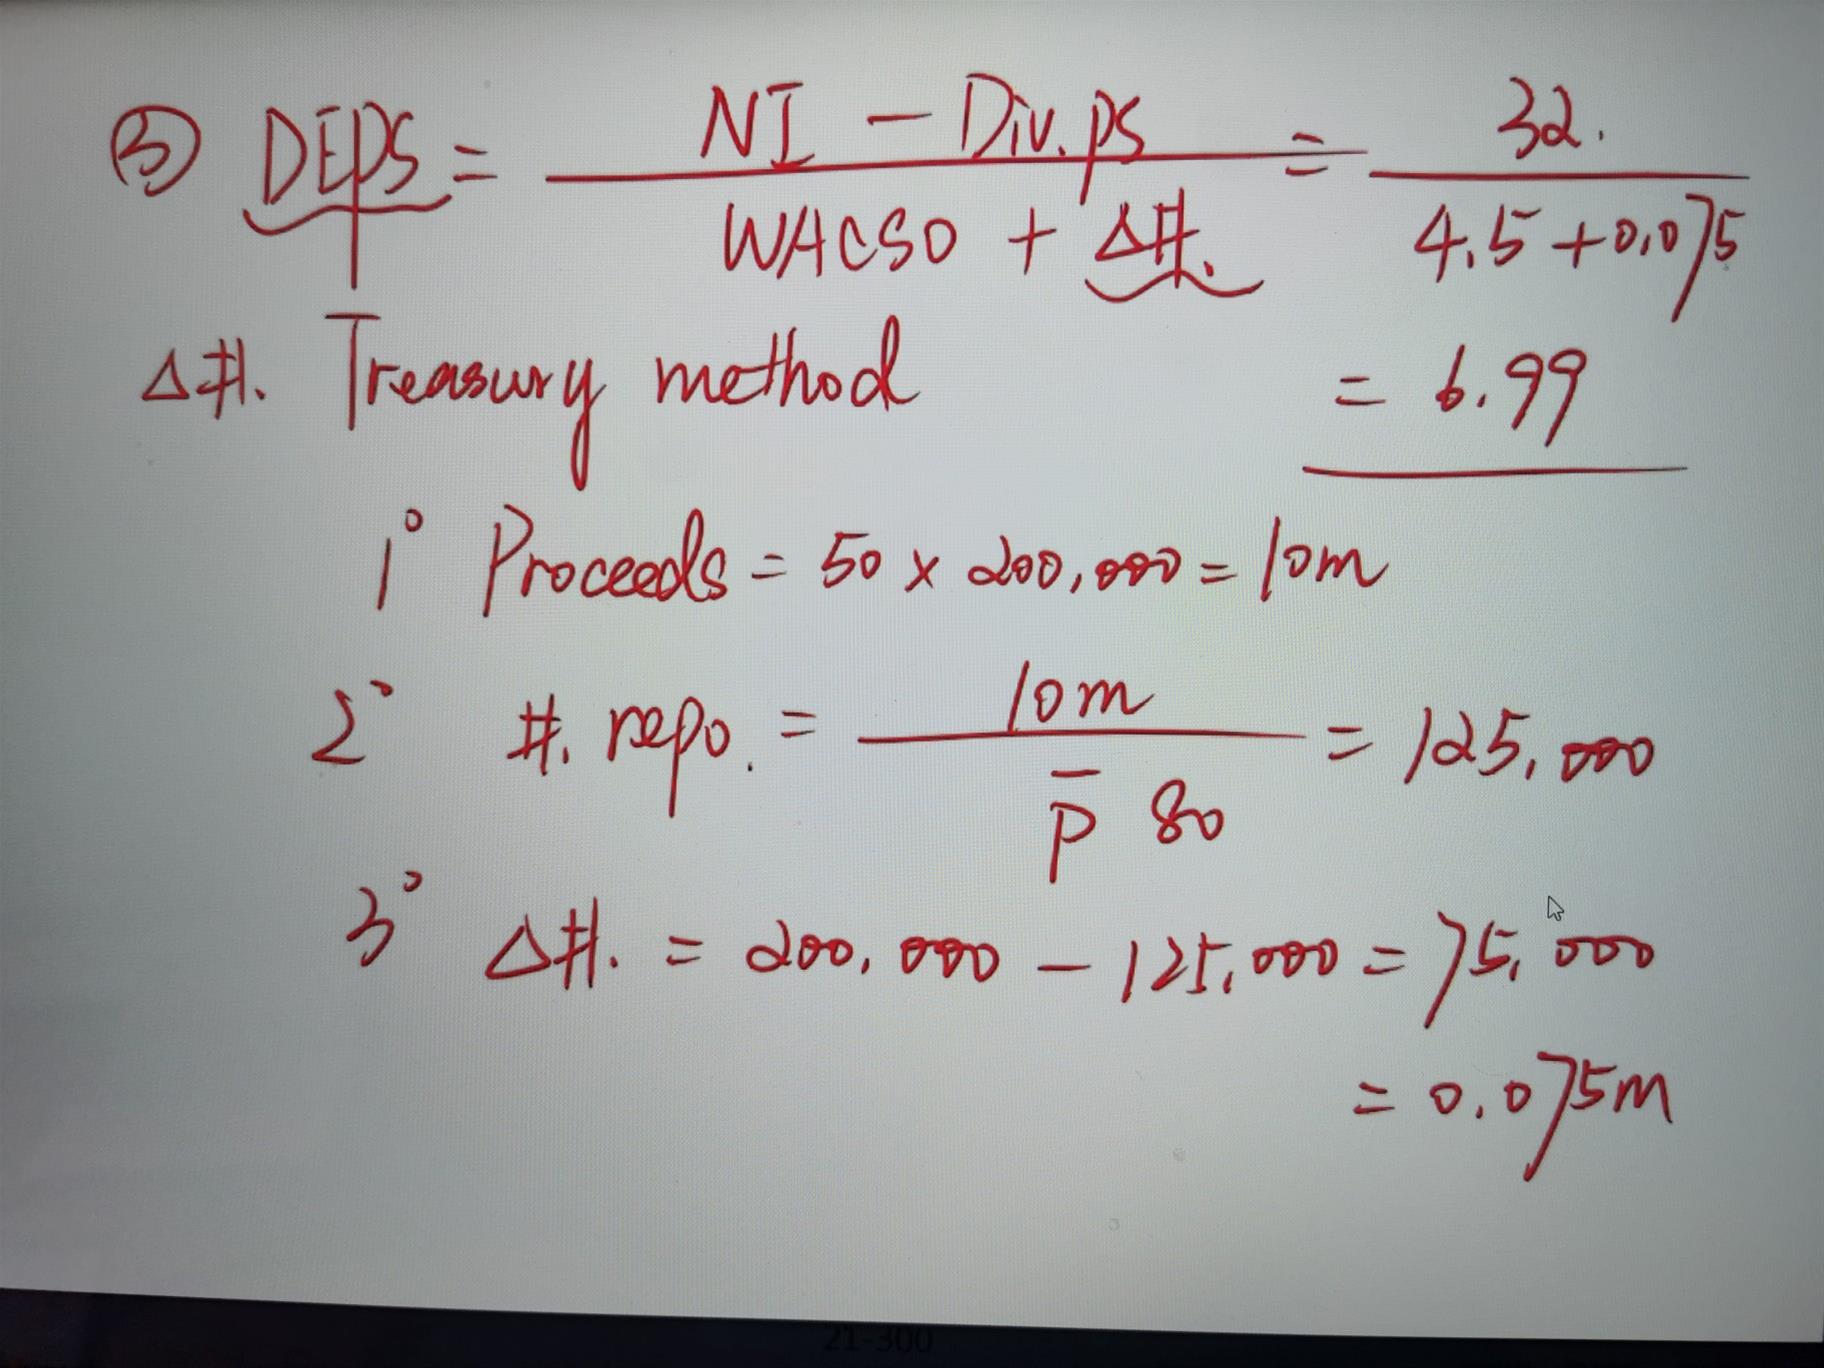 ③ DEPS = NI - Div.ps / WACSO + Δ#. = 32. / 4.5 + 0.075
Δ#. Treasury method = 6.99
1° Proceeds = 50 x 200,000 = 10m
2° #. repo. = 10m / P̄ 80 = 125,000
3° Δ#. = 200,000 - 125,000 = 75,000
= 0.075m
21-300